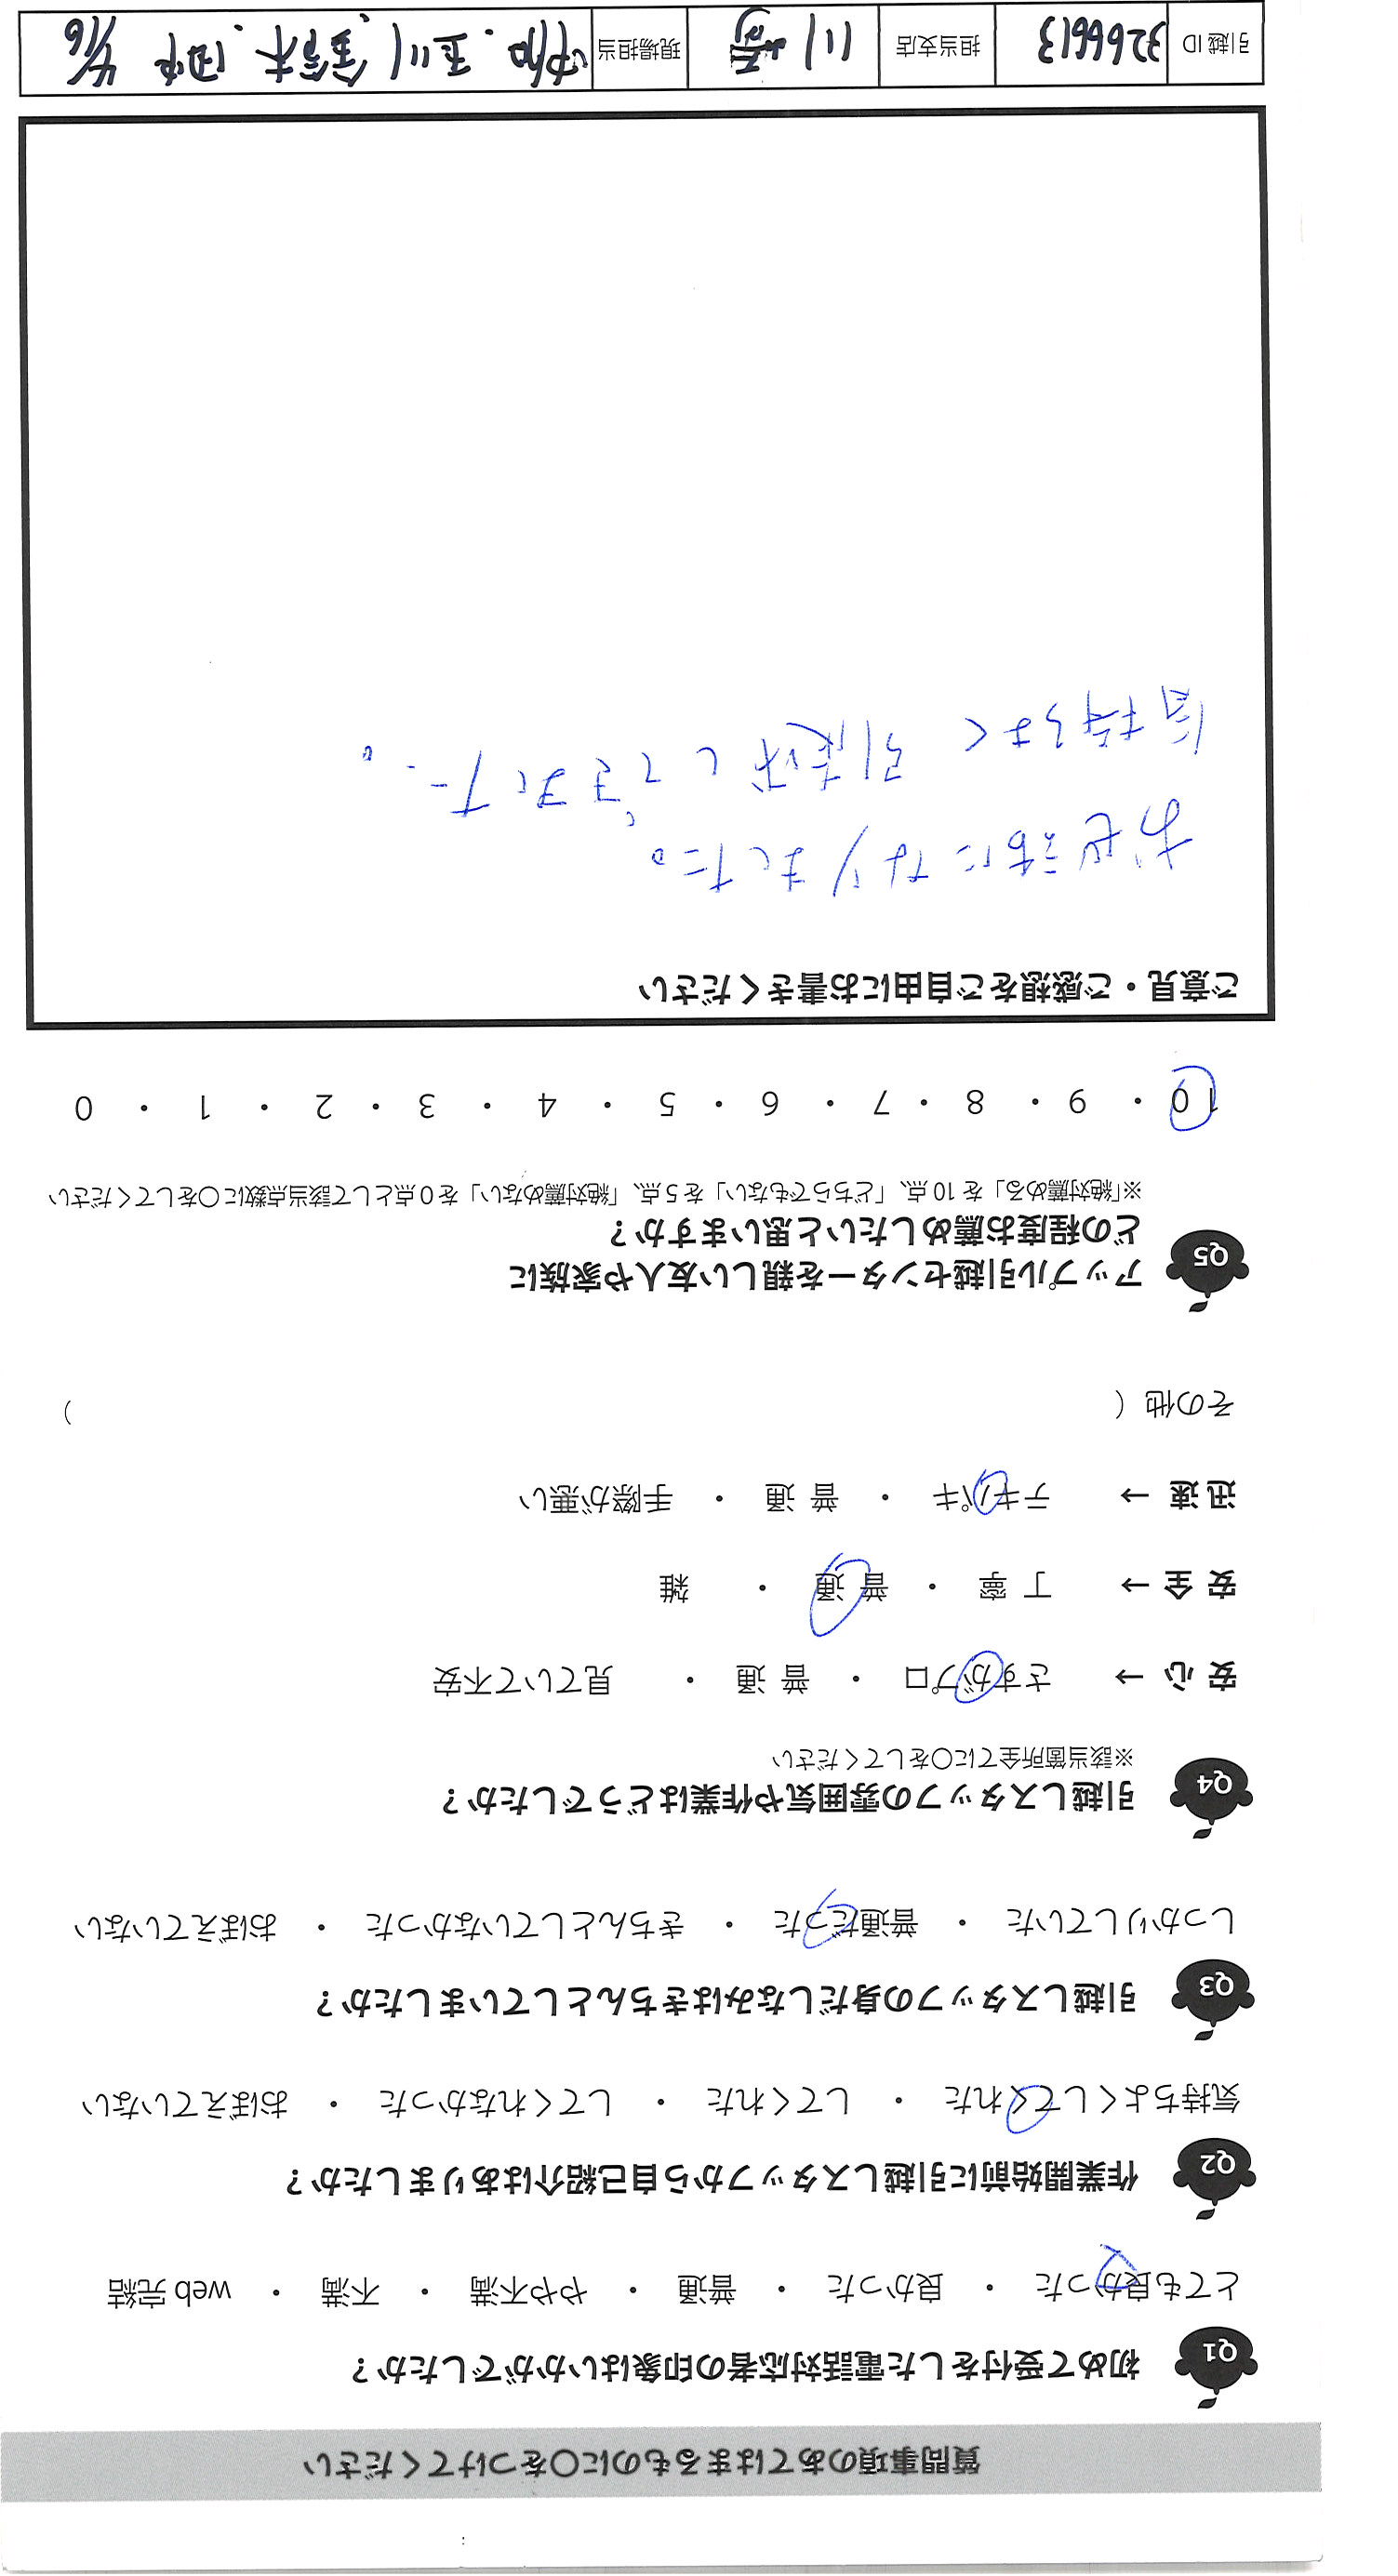 質問事項のあてはまるものに○をつけてください
Q1 初めて受付をした電話対応者の印象はいかがでしたか？
とても良かった ・ 良かった ・ 普通 ・ やや不満 ・ 不満 ・ web 完結
Q2 作業開始前に引越しスタッフから自己紹介はありましたか？
気持ちよくしてくれた ・ してくれた ・ してくれなかった ・ おぼえていない
Q3 引越しスタッフの身だしなみはきちんとしていましたか？
しっかりしていた ・ 普通だった ・ きちんとしていなかった ・ おぼえていない
Q4 引越しスタッフの雰囲気や作業はどうでしたか？
※該当箇所全てに○をしてください
安 心 → さすがプロ ・ 普 通 ・ 見ていて不安
安 全 → 丁 寧 ・ 普 通 ・ 雑
迅 速 → テキパキ ・ 普 通 ・ 手際が悪い
その他（ ）
Q5 アップル引越センターを親しい友人や家族に
どの程度お薦めしたいと思いますか？
※「絶対薦める」を 10 点、「どちらでもない」を 5 点、「絶対薦めない」を 0 点として該当点数に○をしてください
10 ・ 9 ・ 8 ・ 7 ・ 6 ・ 5 ・ 4 ・ 3 ・ 2 ・ 1 ・ 0
ご意見・ご感想をご自由にお書きください
お世話になりました。
気持ちよく引越しできました。
引越 ID 3266613 担当支店 川崎 現場担当 中加・玉川 鈴木・田中 4/16